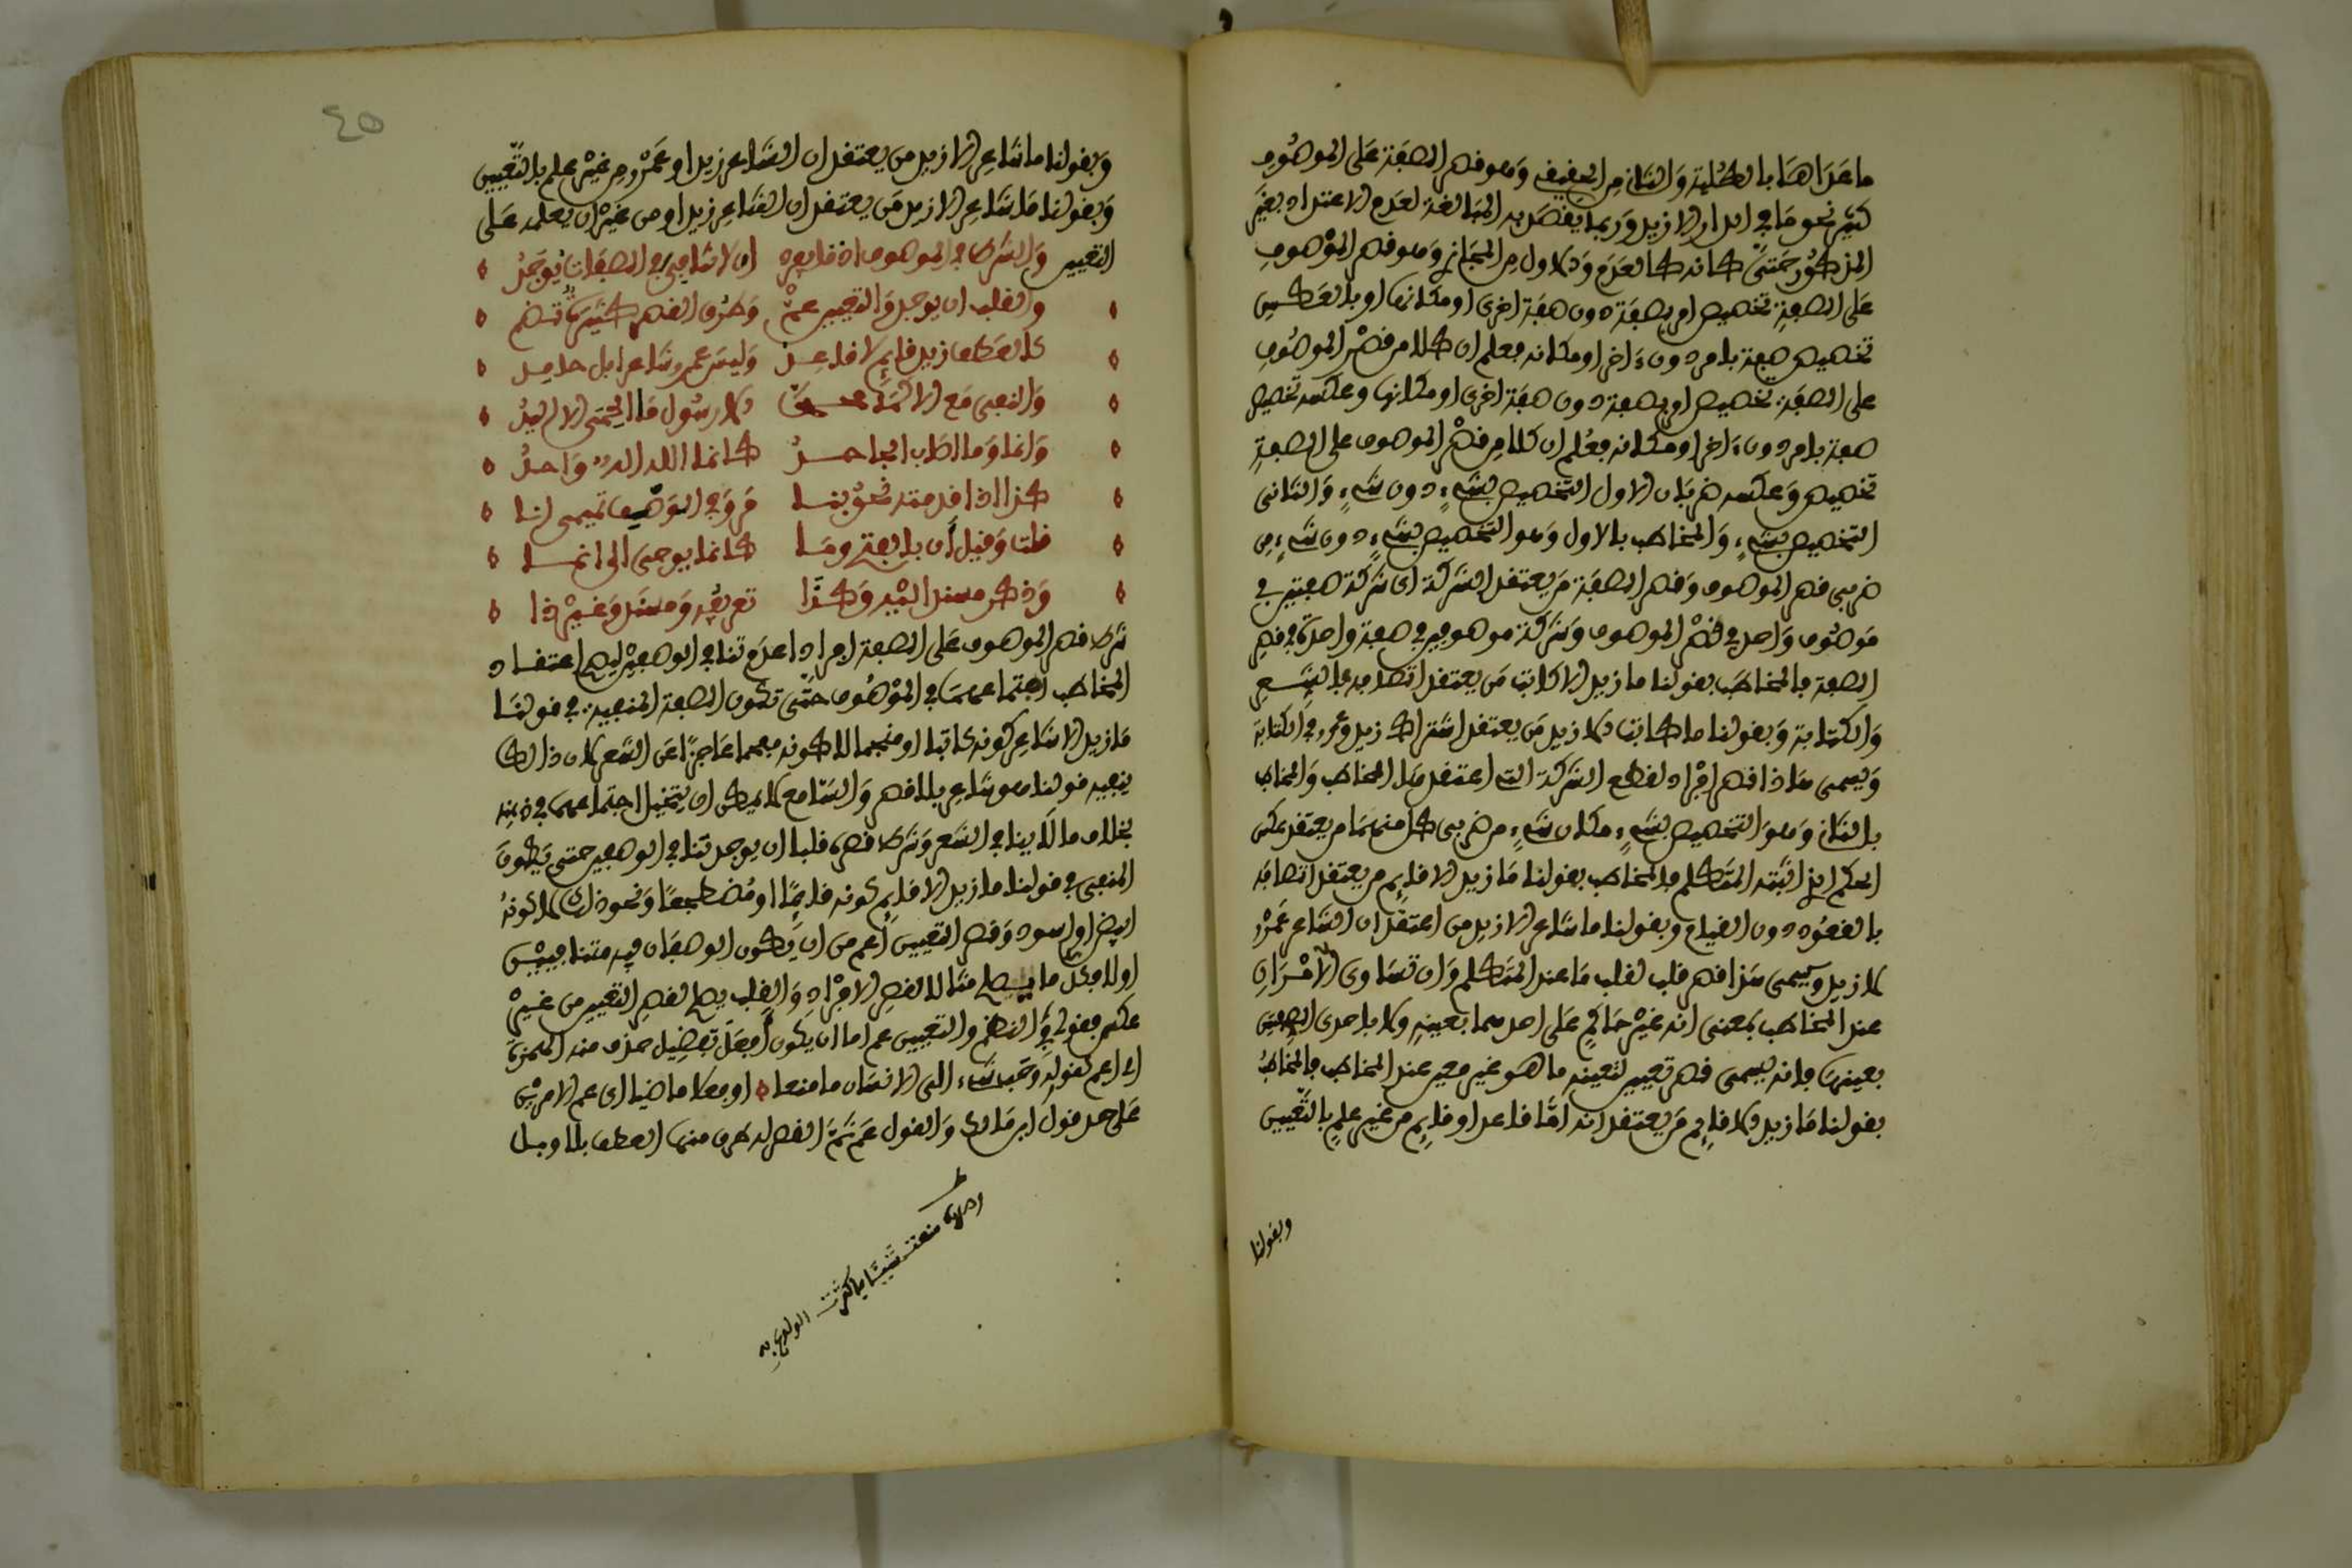 ما عداها بالكلية والثاني من الحقيقي وهو قصر الصفة على الموصوف
كثير نحو ما في الدار الا زيد وربما يقصد به المبالغة لعدم الاعتداد بغير
المذكور حتى كانه كالعدم والاول من المجازي وهو قصر الموصوف
على الصفة تخصيص امر بصفة دون صفة اخرى او مكانها او بالعكس
تخصيص صفة بامر دون ءاخر او مكانه فعلم ان كلا من قصر الموصوف
على الصفة تخصيص امر بصفة دون صفة اخرى او مكانها وعكسه تخصيص
صفة بامر دون ءاخر او مكانه فعلم ان كلا من قصر الموصوف على الصفة
تخصيص وعكسه ضربان الاول التخصيص بشيء دون شيء والثاني
التخصيص بشيء والمخاطب بالاول وهو التخصيص بشيء دون شيء من
ضربي قصر الموصوف وقصر الصفة من يعتقد الشركة اي شركة صفتين في
موصوف واحد في قصر الموصوف وشركة موصوفين في صفة واحدة في قصر
الصفة فالمخاطب بقولنا ما زيد الا كاتب من يعتقد اتصافه بالشعر
والكتابة وبقولنا ما كاتب الا زيد من يعتقد اشتراك زيد وعمرو في الكتابة
ويسمى هذا قصر افراد لقطع الشركة التي اعتقدها المخاطب والمخاطب
بالثاني وهو التخصيص بشيء مكان شيء من ضربي كل منهما من يعتقد عكس
الحكم الذي اثبته المتكلم فالمخاطب بقولنا ما زيد الا قايم من يعتقد اتصافه
بالقعود دون القيام وبقولنا ما شاعر الا زيد من اعتقد ان الشاعر عمرو
لا زيد ويسمى هذا قصر قلب لقلب ما عند المتكلم وان تساوى الامران
عند المخاطب بمعنى انه غير حاكم على احدهما بعينه ولا باحدى الصفتين
بعينها فانه يسمى قصر تعيين لتعينه ما هو غير معين عند المخاطب فالمخاطب
بقولنا ما زيد الا قايم من يعتقد انه اما قاعد او قايم من غير علم بالتعيين
وبقولنا
٤٥
وبقولنا ما شاعر الا زيد من يعتقد ان الشاعر زيد او عمرو من غير علم بالتعيين
وبقولنا ما شاعر الا زيد من يعتقد ان الشاعر زيد او من غير ان يعلمه على
التعيين والشرط في الموصوف اذ ان لا تنافي في الصفات يوجد
والقلب ان يوجد والتعيين عم وطرق القصر كثيرة تضم
كالعطف زيد قايم لا قاعد وليس عمرو شاعرا بل حامد
والنفي مع الا كما محمد الا رسول ما الحمى الا اليد
وانما وما الطب الجامد كانما الله اله واحد
كذا اذا قدمته نحو بنا مر وفي الوصف تميمى انا
قلت وقيل أن بالفتح وما كانما يوحى الى انما
وذكر مسند اليه وكذا تعريفه ومسند وغير ذا
شرط قصر الموصوف على الصفة افرادا عدم تنافي الوصفين ليصح اعتقاد
المخاطب اجتماعهما في الموصوف حتى تكون الصفة المنفية في قولنا
ما زيد الا شاعر كونه كاتبا او منجما لا كونه مفحما عاجزا عن الشعر لان ذالك
ينفيه قولنا هو شاعر بلا قصر والسامع لا يمكن ان يتخيل اجتماعهما في ذهنه
بخلاف ما لا ينافي الشعر وشرط قصره قلبا ان يوجد تنافي الوصفين حتى يكون
المنفي في قولنا ما زيد الا قايم كونه قاعدا او مضطجعا ونحو ذلك لا كونه
ابيض او اسود وقصر التعيين اعم من ان يكون الوصفان فيه متنافيين
او لا فكل ما يصلح مثالا لقصر الافراد والقلب يصلح لقصر التعيين من غير
عكس فقولي في النظم والتعيين عم اما ان يكون أفعل تفضيل حذف منه الهمزة
اي اعم كقوله وحب شيء الى الانسان ما منعا او فعلا ماضيا اى عم الامرين
على حد قول ابن مالك والقول عم ثم القصر له طرق منها العطف بلا وبل
منعت شيئا فاكثرت الولوع به